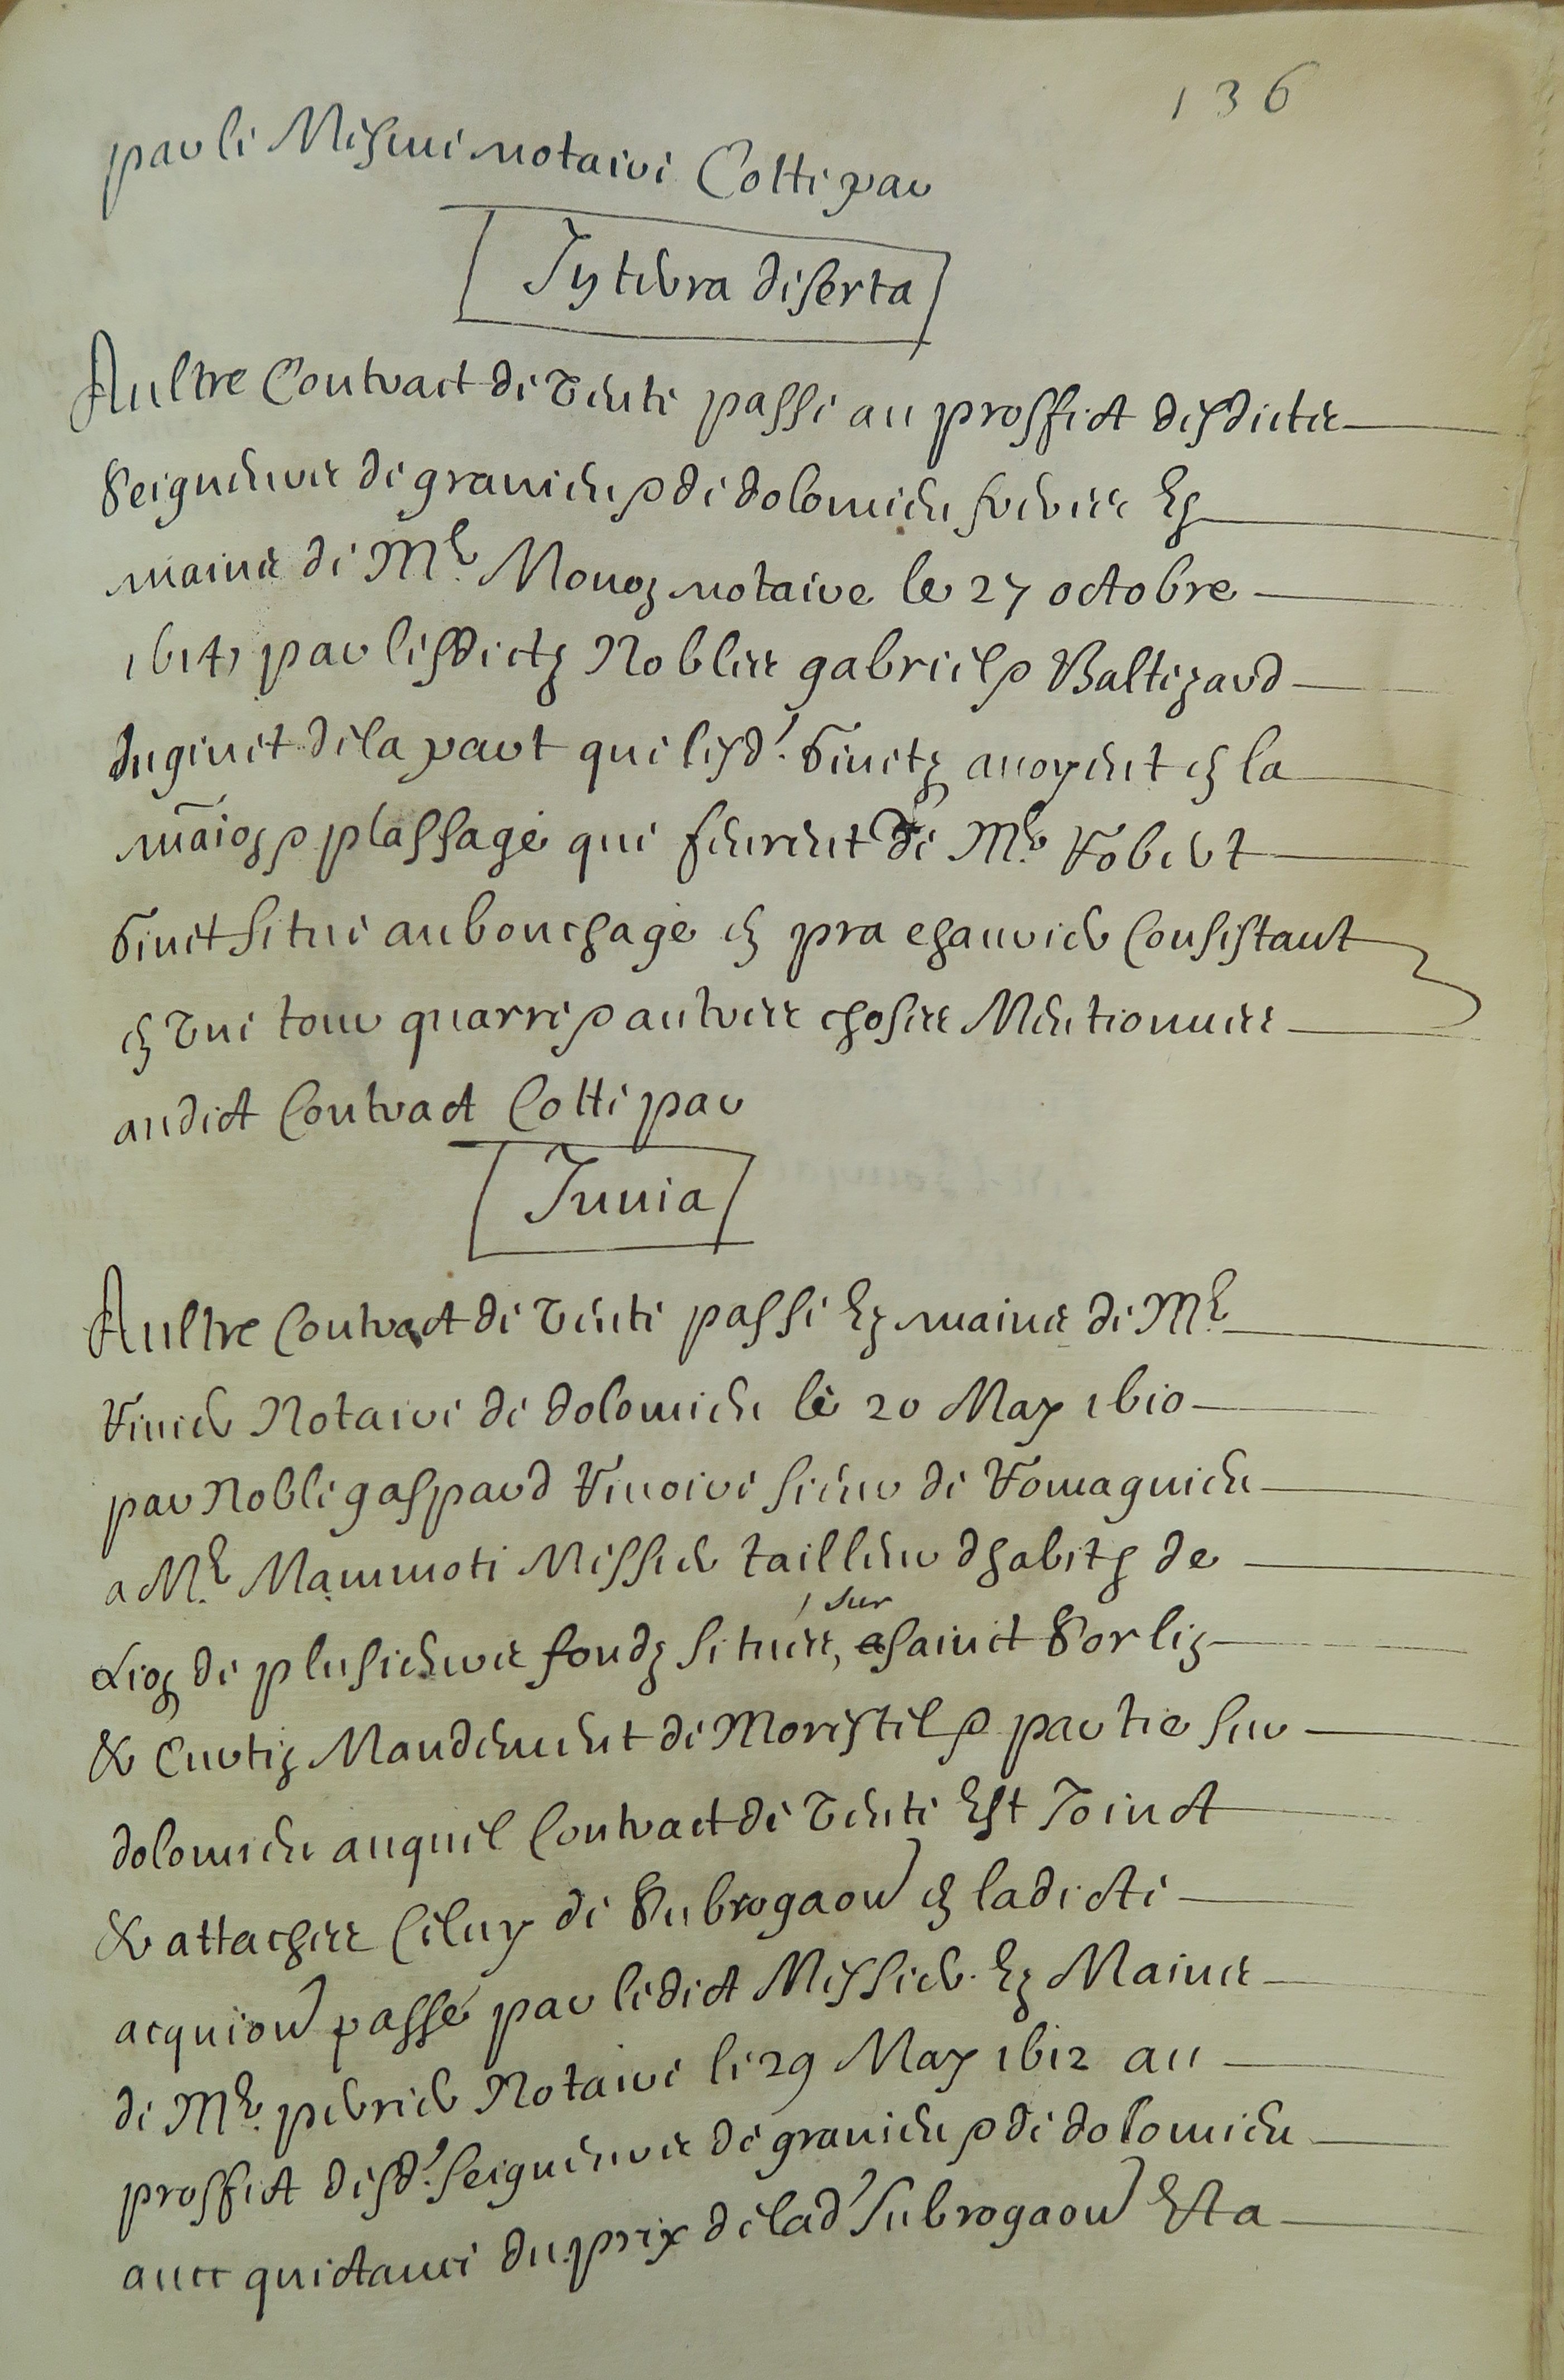 136
par le Mesme notaire Cotté par
In terra deserta
Aultre Contract de vente passé au proffict desdictes
Seigneurs de granieu & de dolomieu freres Es
mains de Me. Monoz notaire le 27 octobre
par lesdictz Nobles gabriel & Baltezard
de la part que lesd. avoyent en la
maison & plassage que feurent de Me Robert
situé au bouchage en pra chanvier Consistant
en une tour quarre & autres choses Mentionnees
audict Contract Cotté par
Innia
Aultre Contract de vente passé Es mains de Me.
Notaire de dolomieu le 20 May 1610
par Noble gaspard sieur de Romagnieu
a Me. Mammote Messier tailleur dhabitz de
Lion de plusieurs fondz situes, a sur sainct Sorlin
& Curtin Mandement de Morestel & partie sur
dolomieu auquel Contract de vente Est Joinct
& attachee Celuy de Subrogaon en ladicte
acquion passé par ledict Messier Es Mains
de Me. perrier Notaire le 29 May 1612 au
proffict desd. seigneurs de granieu & de dolomieu
avec quictance du prix de lad subrogaon Est a